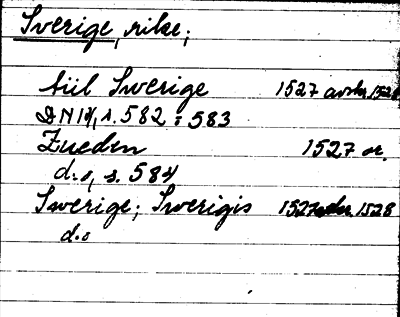 Sverige, rike;
tiil Swerige 1527 avskr. 1528
DN IX, s. 582 - 583
Zueden 1527 or.
d:o, s. 584
Swerige; Swerigis 1527 avskr. 1528
d:o